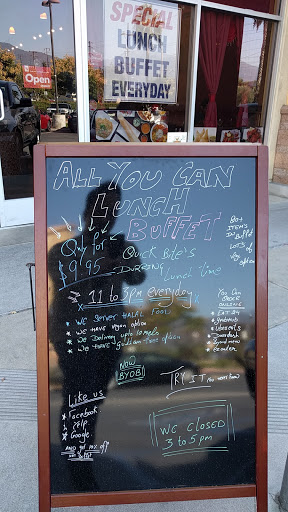 SPECIAL
LUNCH
BUFFET
EVERYDAY
Open
ALL YOU CAN
LUNCH
BUFFET
Only for
$9.95
Quick Bite's
During
Lunch Time
80+
ITEMS
IN BUFFET
LOTS OF
Veg option
11 to 3pm everyday
* WE SERVE HALAL Food
* WE HAVE vegan option
* We Delivery upto 10 miles
* WE HAVE Gluten free option
You Can
ORDER
ONLINE
* EAT 24
* GRUBHUB
* UberEATS
* Doordash
NOW
BYOB!
TRY IT
Like us
* Facebook
* Yelp
* Google
WE CLOSED
3 to 5 pm